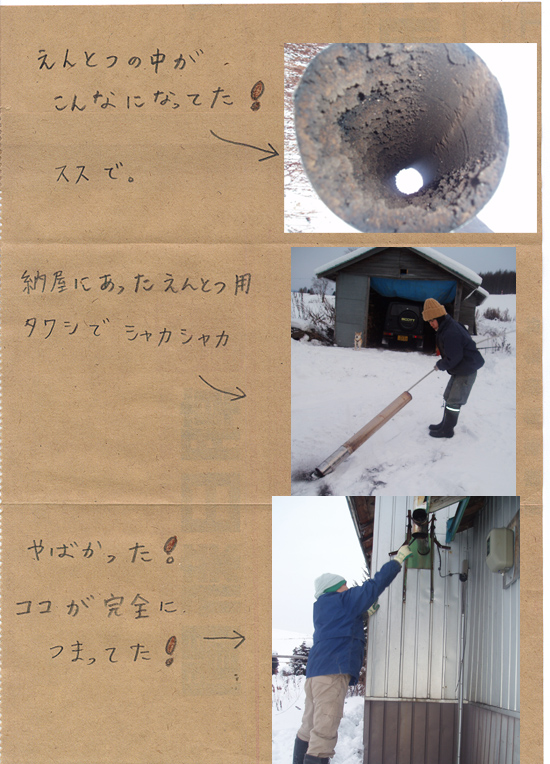 えんとつの中が
こんなになってた!
ススで。
納屋にあったえんとつ用
タワシで シャカシャカ
やばかった!
ココが完全に
つまってた!